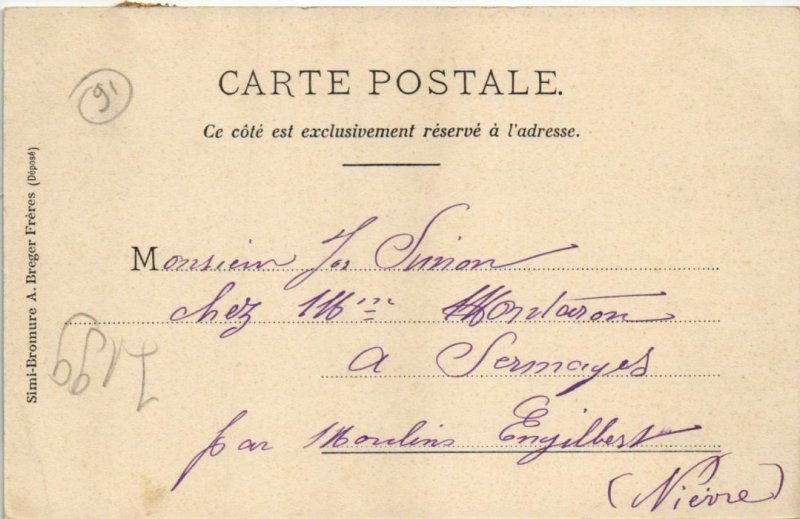 91
CARTE POSTALE.
Ce côté est exclusivement réservé à l'adresse.
Simi-Bromure A. Breger Frères (Déposé)
Monsieur Jos Simon
chez Mme Montaron
a Sermages
par Moulins Engilbert
(Nièvre)